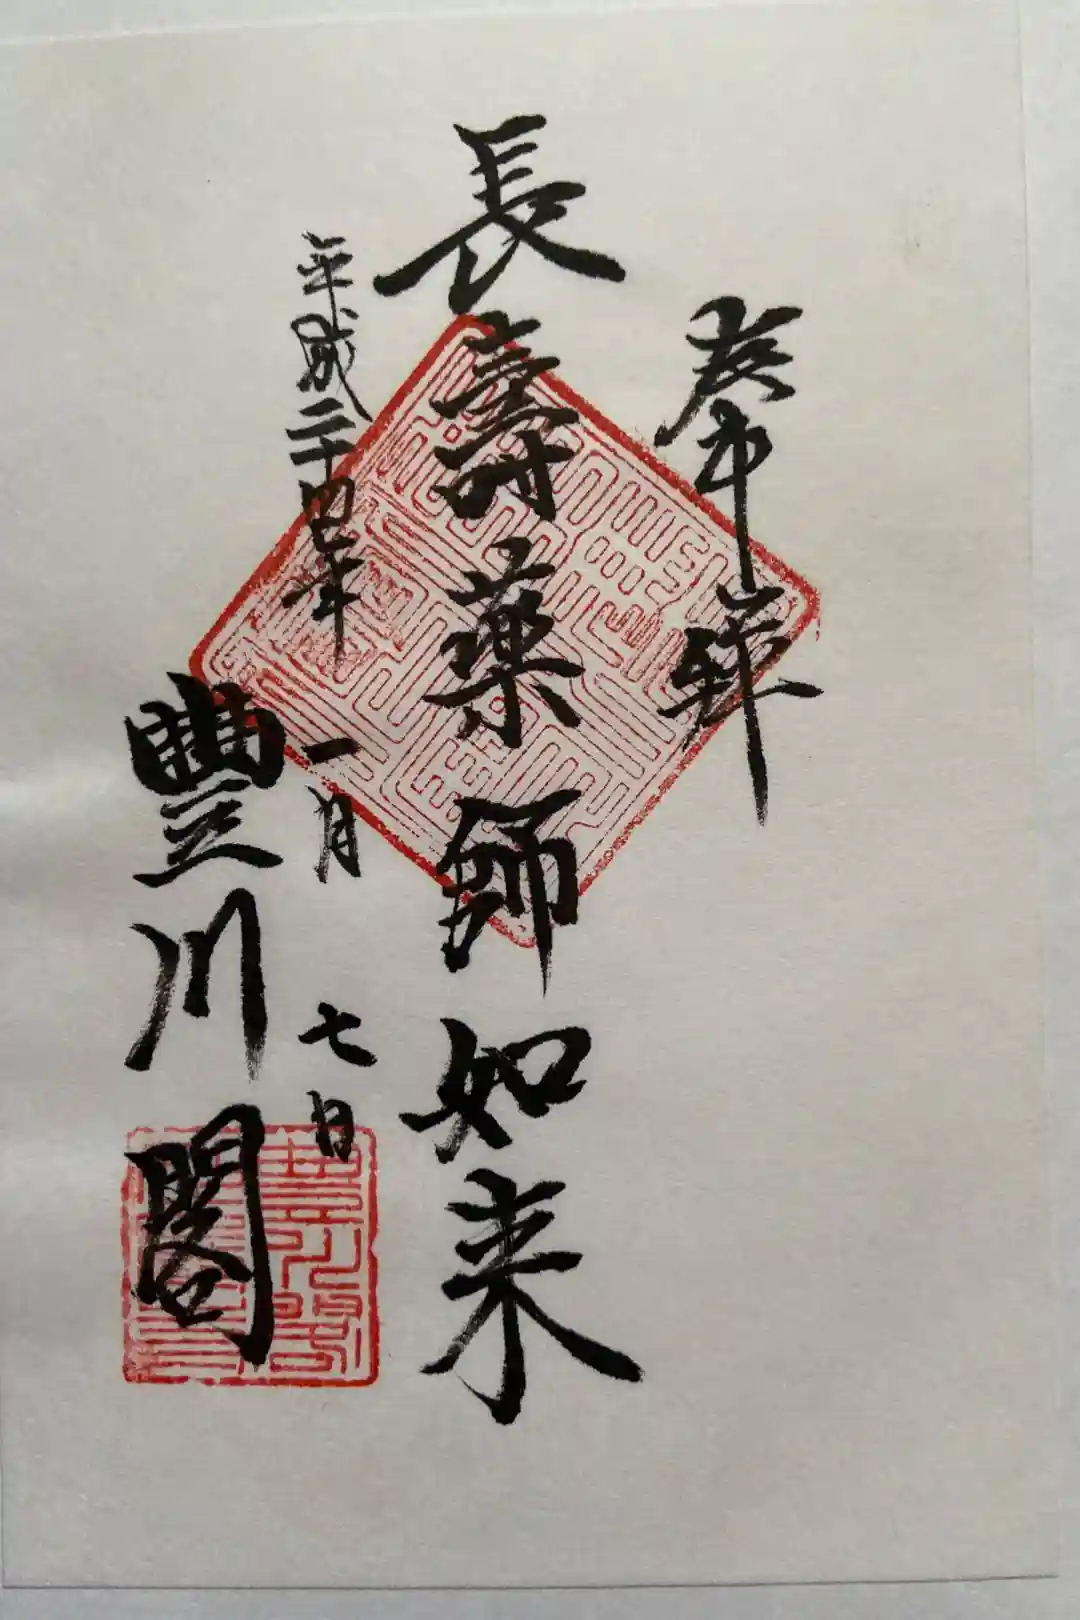 奉拝
長壽薬師如来
平成二十四年一月七日
豐川閣